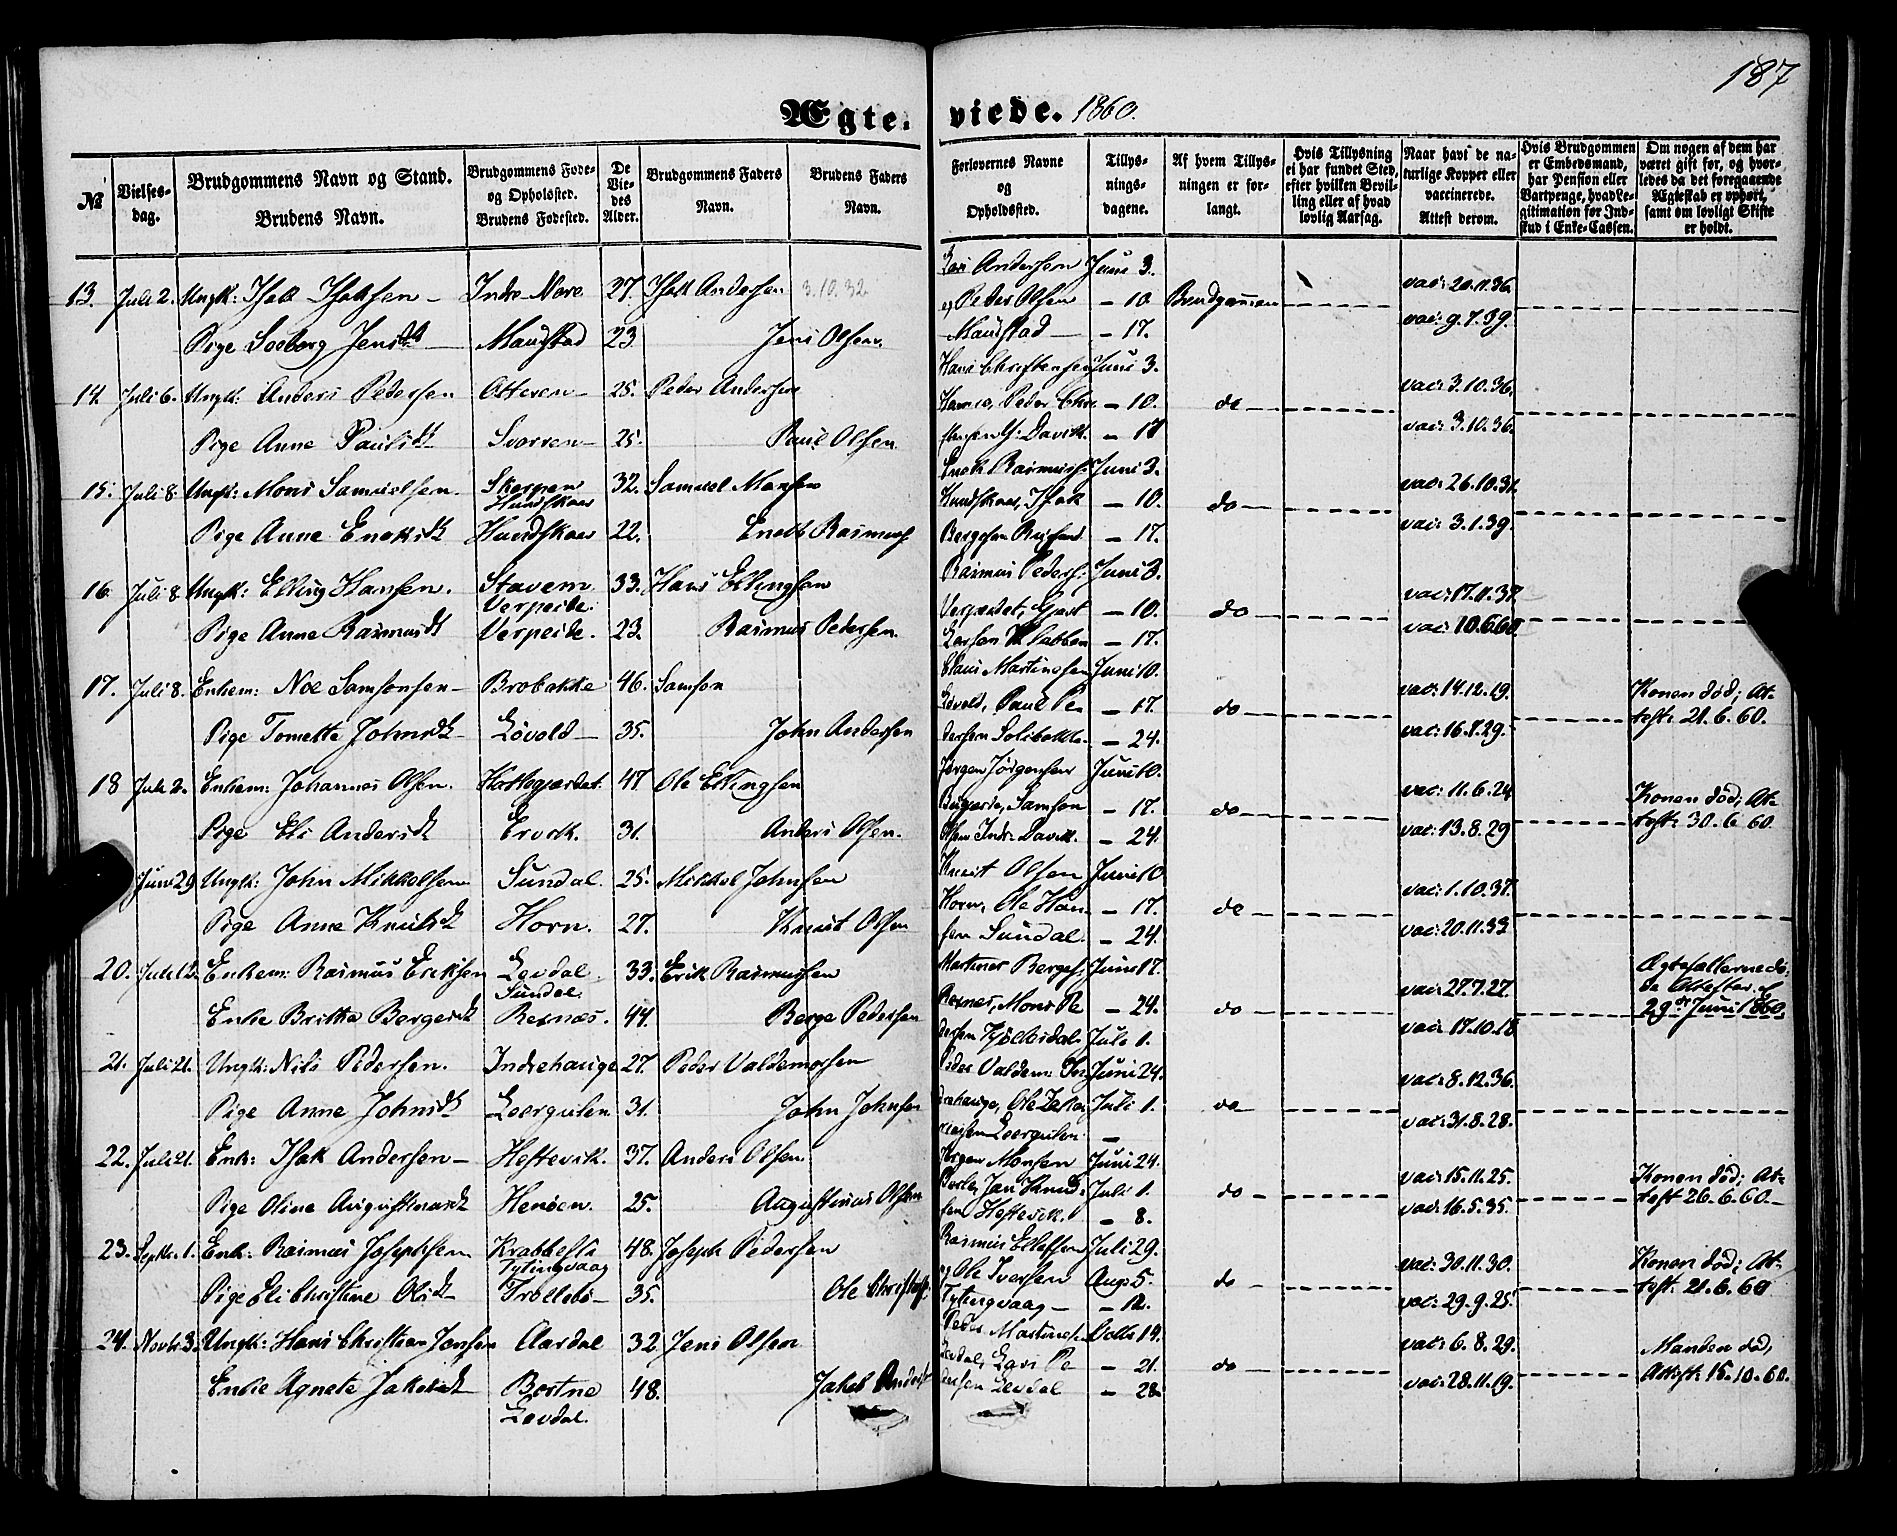 187
Ægte- viede. 1860.
№
Vielses-
dag.
Brudgommens Navn og Stand.
Brudens Navn.
Brudgommens Føde-
og Opholdssted.
Brudens Fødested.
De
Vie-
des
Alder.
Brudgommens Faders
Navn.
Brudens Faders
Navn.
Forlovernes Navne
og
Opholdssted.
Tillys-
nings-
dagene.
Af hvem Tillys-
ningen er for-
langt.
Hvis Tillysning
ei har fundet Sted,
efter hvilken Bevil-
ling eller af hvad
lovlig Aarsag.
Naar havt de na-
turlige Kopper eller
vaccinerede.
Attest derom.
Hvis Brudgommen
er Embedsmand,
har Pension eller
Vartpenge, hvad Le-
gitimation for Ind-
skud i Enke-Cassen.
Om nogen af dem har
været gift før, og hvor-
ledes da det foregaaende
Ægteskab er ophørt,
samt om lovligt Skifte
er holdt.
13. Juli 2. Ungk: Isak Isaksen Indre Nore 27. Isak Andersen 3.10.32
Pige Soeborg Jensdt Maurstad 23 Jens Olsen.
Andersen Juni 3.
og Peder Olsen - 10. Brudgommen vac: 20.11.36.
Maurstad - 17. vac: 9.7.39.
14. Juli 6. Ungk: Anders Pedersen Otteren 25. Peder Andersen
Pige Anne Paulsdt Svorren 25. Paul Olsen
Hans Christensen Juni 3.
Peder Chri - 10. do vac: 3.10.36.
stensen Y: Davik. - 17 vac: 3.10.36.
15. Juli 8. Ungk: Mons Samuelsen. 32. Samuel Monsen
Hundskaar
Pige Anne Enoksdt Hundskaar 22. Enok Rasmuss.
Enok Rasmuss. Juni 3.
Hundskaar, Isak - 10. do vac: 26.10.31.
- 17. vac: 3.1.39.
16. Juli 8. Ungk: Elling Hansen. Stavem 33. Hans Ellingsen
Verpeide.
Pige Anne Rasmusdt Verpeide. 23. Rasmus Pedersen.
Rasmus Peders. Juni 3.
- 10. do vac: 17.11.37.
- 17. vac: 10.6.60
17. Juli 8. Enkem: Noe Samsonsen Brobakke 46. Samson
Pige Tomette Johnsdt Løvold 35. John Andersen
Claus Martinssen Juni 10.
Løvold, Paul Pe - 17. do vac: 14.12.19. Konen død; At-
dersen - 24. vac: 16.7.29. test: 21.6.60.
18 Juli 2. Enkem: Johannes Olsen. 47 Ole Ellingsen
Pige Eli Andersdt Ervik. 31. Anders Olsen.
Jørgen Jørgensen Juni 10.
Samson - 17. do vac: 11.6.24 Konen død; At-
Olsen Indr: Davik. - 24. vac: 13.8.29 test: 30.6.60.
Juni 29 Ungk: John Mikkelsen Sundal. 25. Mikkel Johnsen
Pige Anne Knutsdt Horn. 27. Knut Olsen
Knut Olsen Juni 10
Horn, Ole Han - 17. do vac: 1.10.37.
sen Sundal. - 24. vac: 20.11.33
20. Juli 2. Enkem: Rasmus Eriksen Levdal. 33. Erik Rasmussen
Sundal.
Enke Britha Bergesdt Rexnæs. 44. Berge Pedersen
Martinus Berges. Juni 17.
Rexnæs, Mons Pe - 24. do vac: 27.7.27.
dersen Juli 1. vac: 17.10.18 29de Juni 1860.
21. Juli 21. Ungk: Nils Pedersen. Indrehauge 27. Peder Valdemarsen
Pige Anne Johnsdt Leergulen 31. John Johnsen
Peder Valdem: In- Juni 24.
drehauge, Ole Zaka Juli 1. do vac: 8.12.36.
riasen Leergulen. - vac: 31.8.28.
22. Juli 21. Enk: Isak Andersen Hestevik. 37. Anders Olsen.
Pige Oline Augustinusdt Henøen 25. Augustinus Olsen
Jørgen Monsen Juni 24.
Jan Knud Juli 1. do vac: 15.11.25. Konen død; At-
sen Hestevik. - 8. vac: 16.5.35. test: 26.6.60.
23. Septb. 1. Enk: Rasmus Josephsen Krabbestø 48. Joseph Pedersen
Tytingvaag
Pige Eli Christine Olsdt Trollebø 35. Ole Christofs.
Rasmus Ellefsen Juli 29.
og Ole Iversen Aug: 5. do vac: 30.11.30. Konen død; At-
Tytingvaag - 12. vac: 29.9.25. test: 21.6.60
24. Novb. 3. Ungk: Hans Christian Jensen Aardal 32 Jens Olsen
Enke Agnete Jakobsdt Bortne 48. Jakob Anders
Levdal.
Peder Martinus. Octb: 14.
Levdal, Lars Pe - 21. do vac: 6.8.29. Manden død,
dersen Levdal - 28 vac: 28.11.19. Attest: 15.10.60.